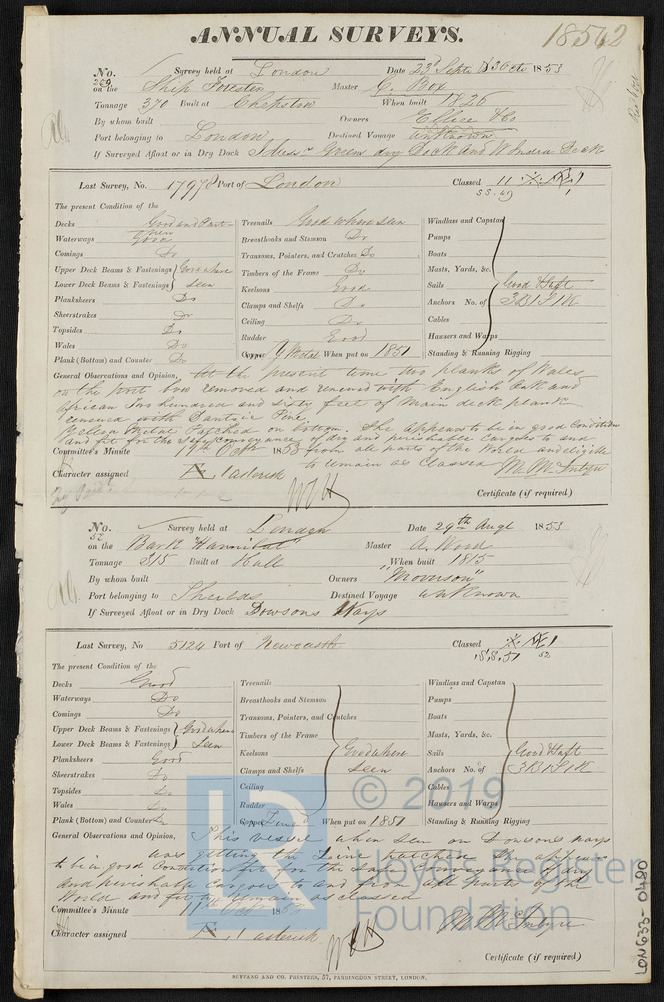 ANNUAL SURVEYS.
18542
No. 269 Survey held at London Date 23d Septr & 3 Octr 1853
on the Ship Forester Master C. Box
Tonnage 370 Built at Chepstow When built 1826
By whom built Owners Ellice & Co
Port belonging to London Destined Voyage unknown
If Surveyed Afloat or in Dry Dock Green dry Dock and W India Dock
Last Survey, No. 17978 Port of London Classed 11
SS. 49 1
The present Condition of the
Decks Good and Part New Treenails Good where seen Windlass and Capstan
Waterways Good Breasthooks and Stemson Do Pumps
Comings Do Transoms, Pointers, and Crutches Do Boats
Upper Deck Beams & Fastenings Good where Timbers of the Frame Do Masts, Yards, &c.
Lower Deck Beams & Fastenings seen Keelsons Good Sails Good & Saft
Planksheers Do Clamps and Shelfs Do Anchors No. of 3B 1S 1K
Sheerstrakes Do Ceiling Do Cables
Topsides Do Rudder Good Hausers and Warps
Wales Do Copper Y Metal When put on 1851 Standing & Running Rigging
Plank (Bottom) and Counter Do
General Observations and Opinion, At the present time two planks of Wales
on the port bow removed and renewed with English Oak and
African Two hundred and sixty feet of main deck plank
renewed with Dantzic Pine.
Yellow Metal Patched on bottom. She appears to be in good Condition
and fit for the safe conveyance of dry and perishable Cargoes to and
Committee's Minute 1853 from all parts of the World and eligible
to remain as Classed
Character assigned 1 asterisk
Certificate (if required)
No. 52 Survey held at London Date 29th Augt 1853
on the Bark "Hannibal" Master A. Wood
Tonnage 315 Built at Hull When built 1815
By whom built Owners "Morrison"
Port belonging to Shields Destined Voyage unknown
If Surveyed Afloat or in Dry Dock Dowsons Ways
Last Survey, No 5124 Port of Newcastle Classed
S.S. 51 52
The present Condition of the
Decks Good Treenails Windlass and Capstan
Waterways Do Breasthooks and Stemson Pumps
Comings Do Transoms, Pointers, and Crutches Boats
Upper Deck Beams & Fastenings Good where Timbers of the Frame Masts, Yards, &c.
Lower Deck Beams & Fastenings Seen Keelsons Good where Sails Good & Saft
Planksheers Good Clamps and Shelfs seen Anchors No. of 3B 1S 1K
Sheerstrakes Do Ceiling Cables
Topsides Do Rudder Hausers and Warps
Wales Do Copper When put on 1851 Standing & Running Rigging
Plank (Bottom) and Counter Do
General Observations and Opinion, This vessel when seen on Dowsons ways
was getting the patched She appears
to be in good Condition fit for the safe conveyance of dry
and perishable Cargoes to and from all parts of the
World and fit to remain as classed
Committee's Minute 185
Character assigned 1 asterisk
Certificate (if required)
SEYFANG AND CO. PRINTERS, 57, FARRINGDON STREET, LONDON.
LON633-0480
© 2019
Lloyd's Register
Foundation